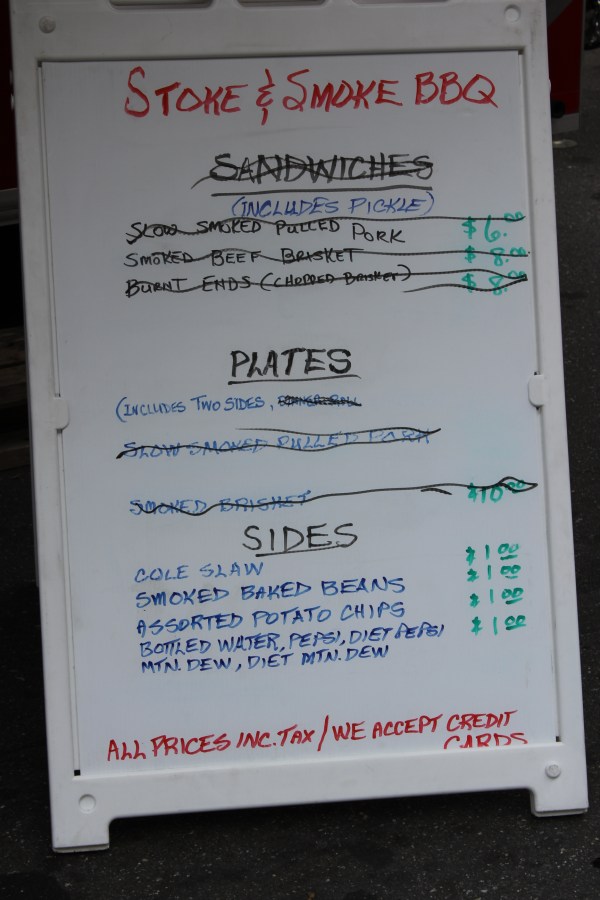 STOKE & SMOKE BBQ
SANDWICHES
(INCLUDES PICKLE)
SLOW SMOKED PULLED PORK $6.00
SMOKED BEEF BRISKET $8.00
BURNT ENDS (CHOPPED BRISKET) $8.00
PLATES
(INCLUDES TWO SIDES,
SLOW SMOKED PULLED PORK
SMOKED BRISKET $10.00
SIDES
COLE SLAW $1.00
SMOKED BAKED BEANS $1.00
ASSORTED POTATO CHIPS $1.00
BOTTLED WATER, PEPSI, DIET PEPSI $1.00
MTN. DEW, DIET MTN. DEW
ALL PRICES INC. TAX/WE ACCEPT CREDIT
CARDS